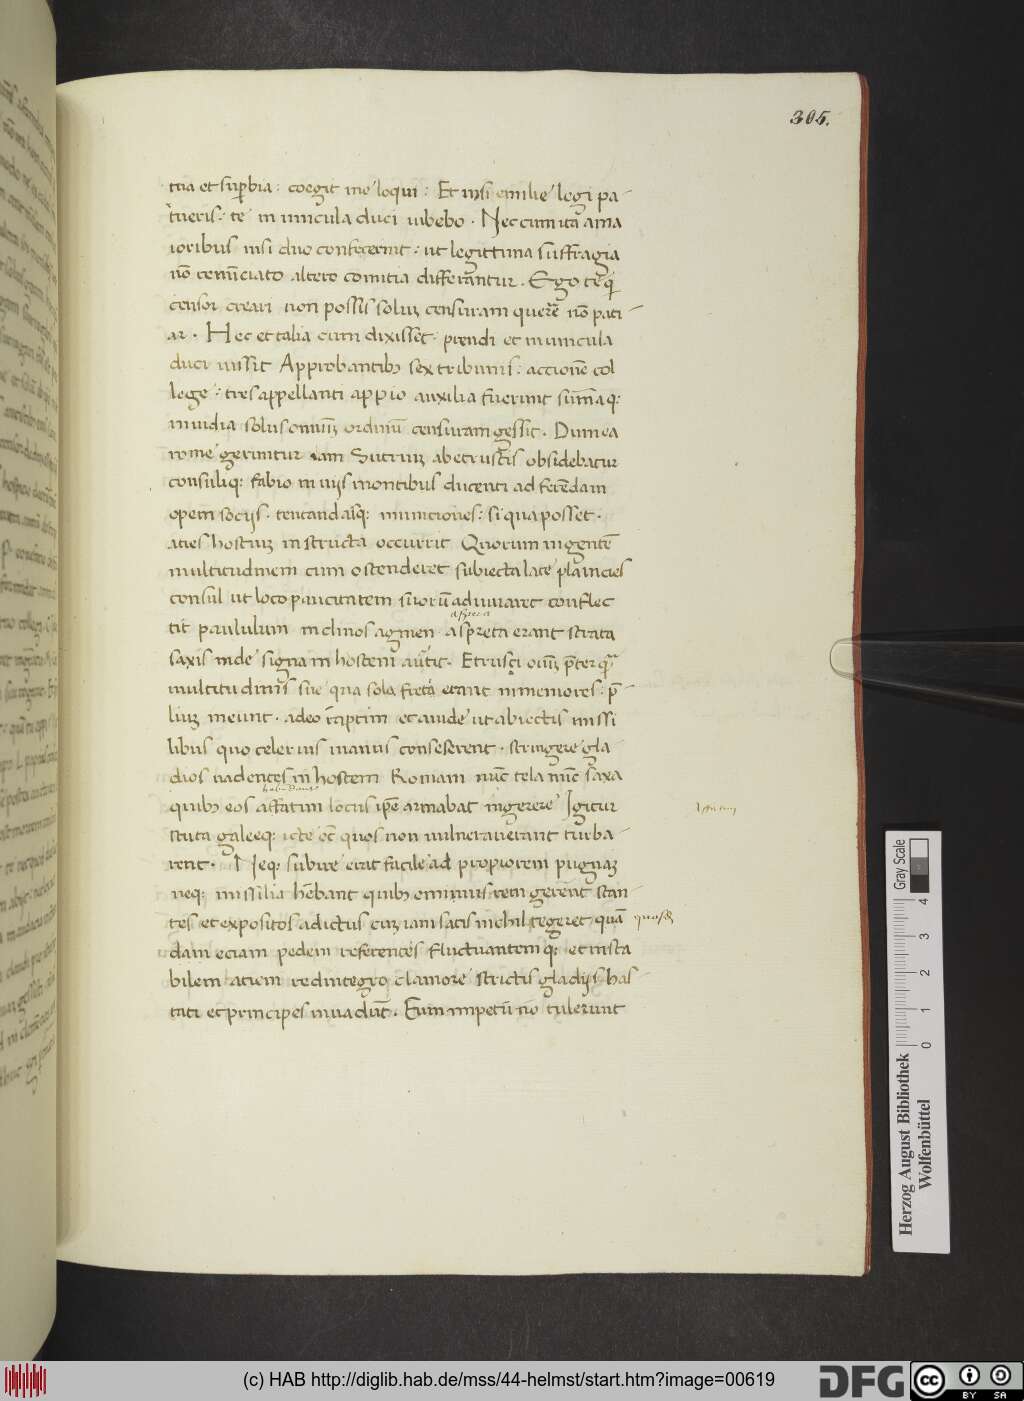 305.
tia et supbia: coegit me loqui: Et nisi emilie legi pa-
rueris: te in uincula duci iubebo. Nec cum ita a ma
ioribus nisi duo confecerint: ut legittima suffragia
nō renūciato altero comitia differantur. Ego te q
censor creari non possis solus censuram querē nō pati-
ar. Hec et talia cum dixisset prendi et in uincula
duci iussit Approbantibus sex tribunis: accionē col
lege: tres appellanti appio auxilia fuerunt sūmaq:
inuidia solus omniū ordinū censuram gessit. Dum ea
rome geruntur iam Sutrium ab etruscis obsidebatur
consuliq: fabio in uijs montibus ducenti ad ferēdam
opem socijs. tentandasq: municiones: si qua posset.
acies hostium instructa occurrit Quorum ingentē
multitudinem cum ostenderet subiecta late planicies
consul ut loco paucitatem suorū adiuuaret conflec
aspera
tit paululum in cliuos agmen aspreta erant strata
saxis inde signa in hostem aūtit. Etrusci oīum preter qua
multitudinis sue qua sola freta erant inmemores: p̄
lium ineunt. adeo raptim et auide ut abiectis missi
libus quo celerius manus consererent. stringere gla-
dios uadentes in hostem Romani nūc tela nūc saxa
habundans
quibus eos affatim locus ipē armabat ingerere Igitur
Affatim
scuta galeeq: icte ēc quos non uulnerauerant turba-
rent. Neq: subire erat facile ad propiorem pugnam
neq: missilia hēbant quibus eminus rem gererēt stan-
tes et expositos ad ictus cum iam satis nichil tegeret quā
quosd
dam eciam pedem referentes fluctuantemq: et insta
bilem aciem redintegro clamore strictis gladijs has-
tati et principes inuadūt. Eum impetū nō tulerunt
Gray Scale
0 1 2 3 4
Herzog August Bibliothek
Wolfenbüttel
(c) HAB http://diglib.hab.de/mss/44-helmst/start.htm?image=00619
DFG
cc BY SA